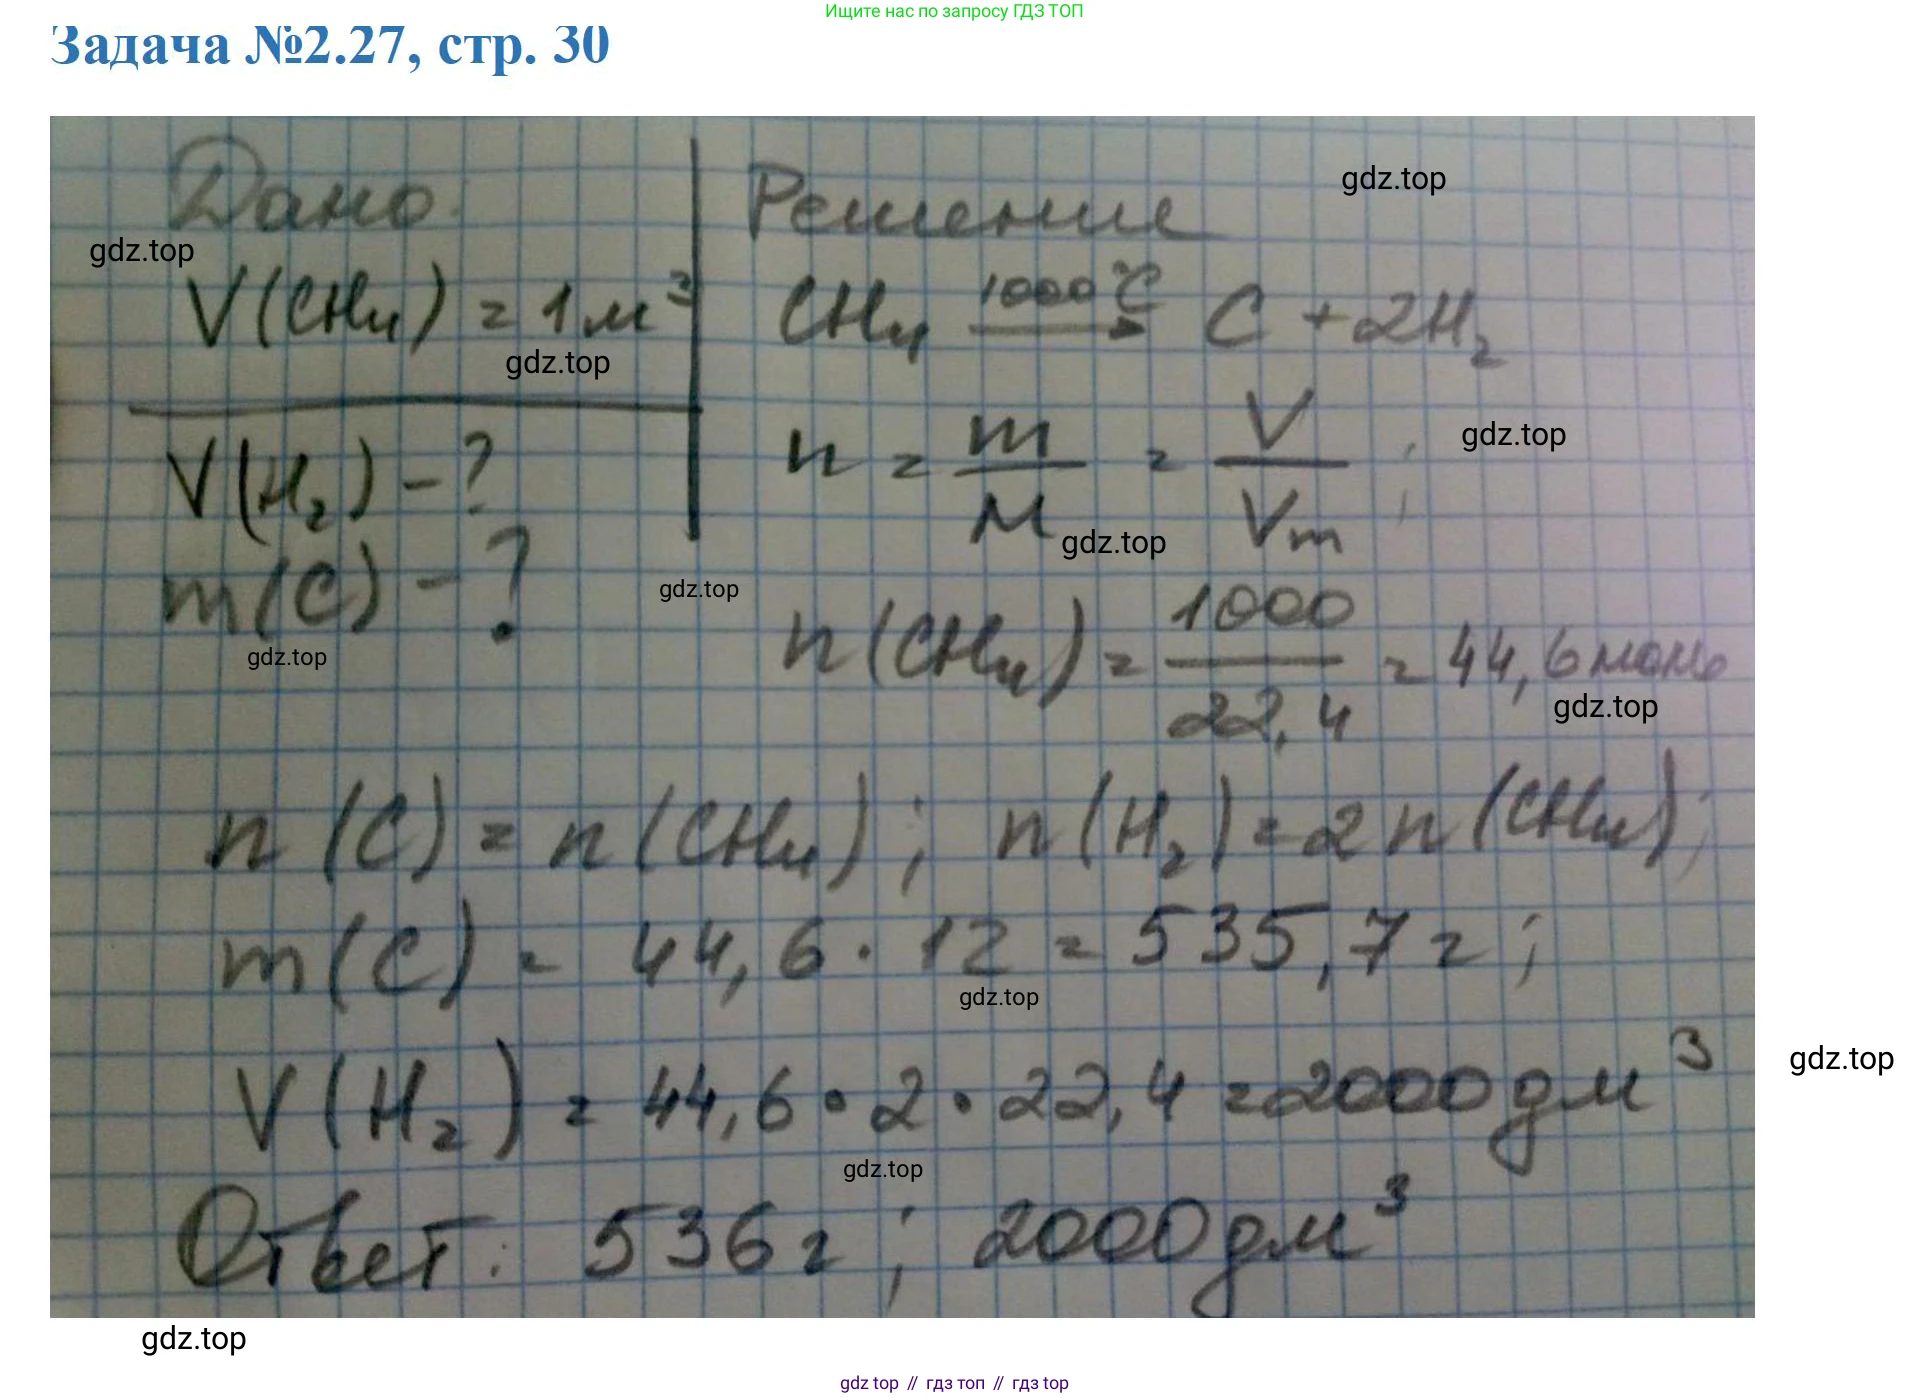 Ищите нас по запросу ГДЗ ТОП
Задача №2.27, стр. 30
Дано:
V(CH₄) = 1 м³
V(H₂) - ?
m(C) - ?
Решение
CH₄ 1000°C → C + 2H₂
n = m/M = V/Vm ;
n(CH₄) = 1000/22,4 = 44,6 моль
n(C) = n(CH₄); n(H₂) = 2n(CH₄);
m(C) = 44,6 · 12 = 535,7 г;
V(H₂) = 44,6 · 2 · 22,4 = 2000 дм³
Ответ: 536 г; 2000 дм³
gdz.top
gdz.top
gdz.top
gdz.top
gdz.top
gdz.top
gdz.top
gdz.top
gdz.top
gdz.top
gdz.top
gdz.top
gdz top // гдз топ // гдз top